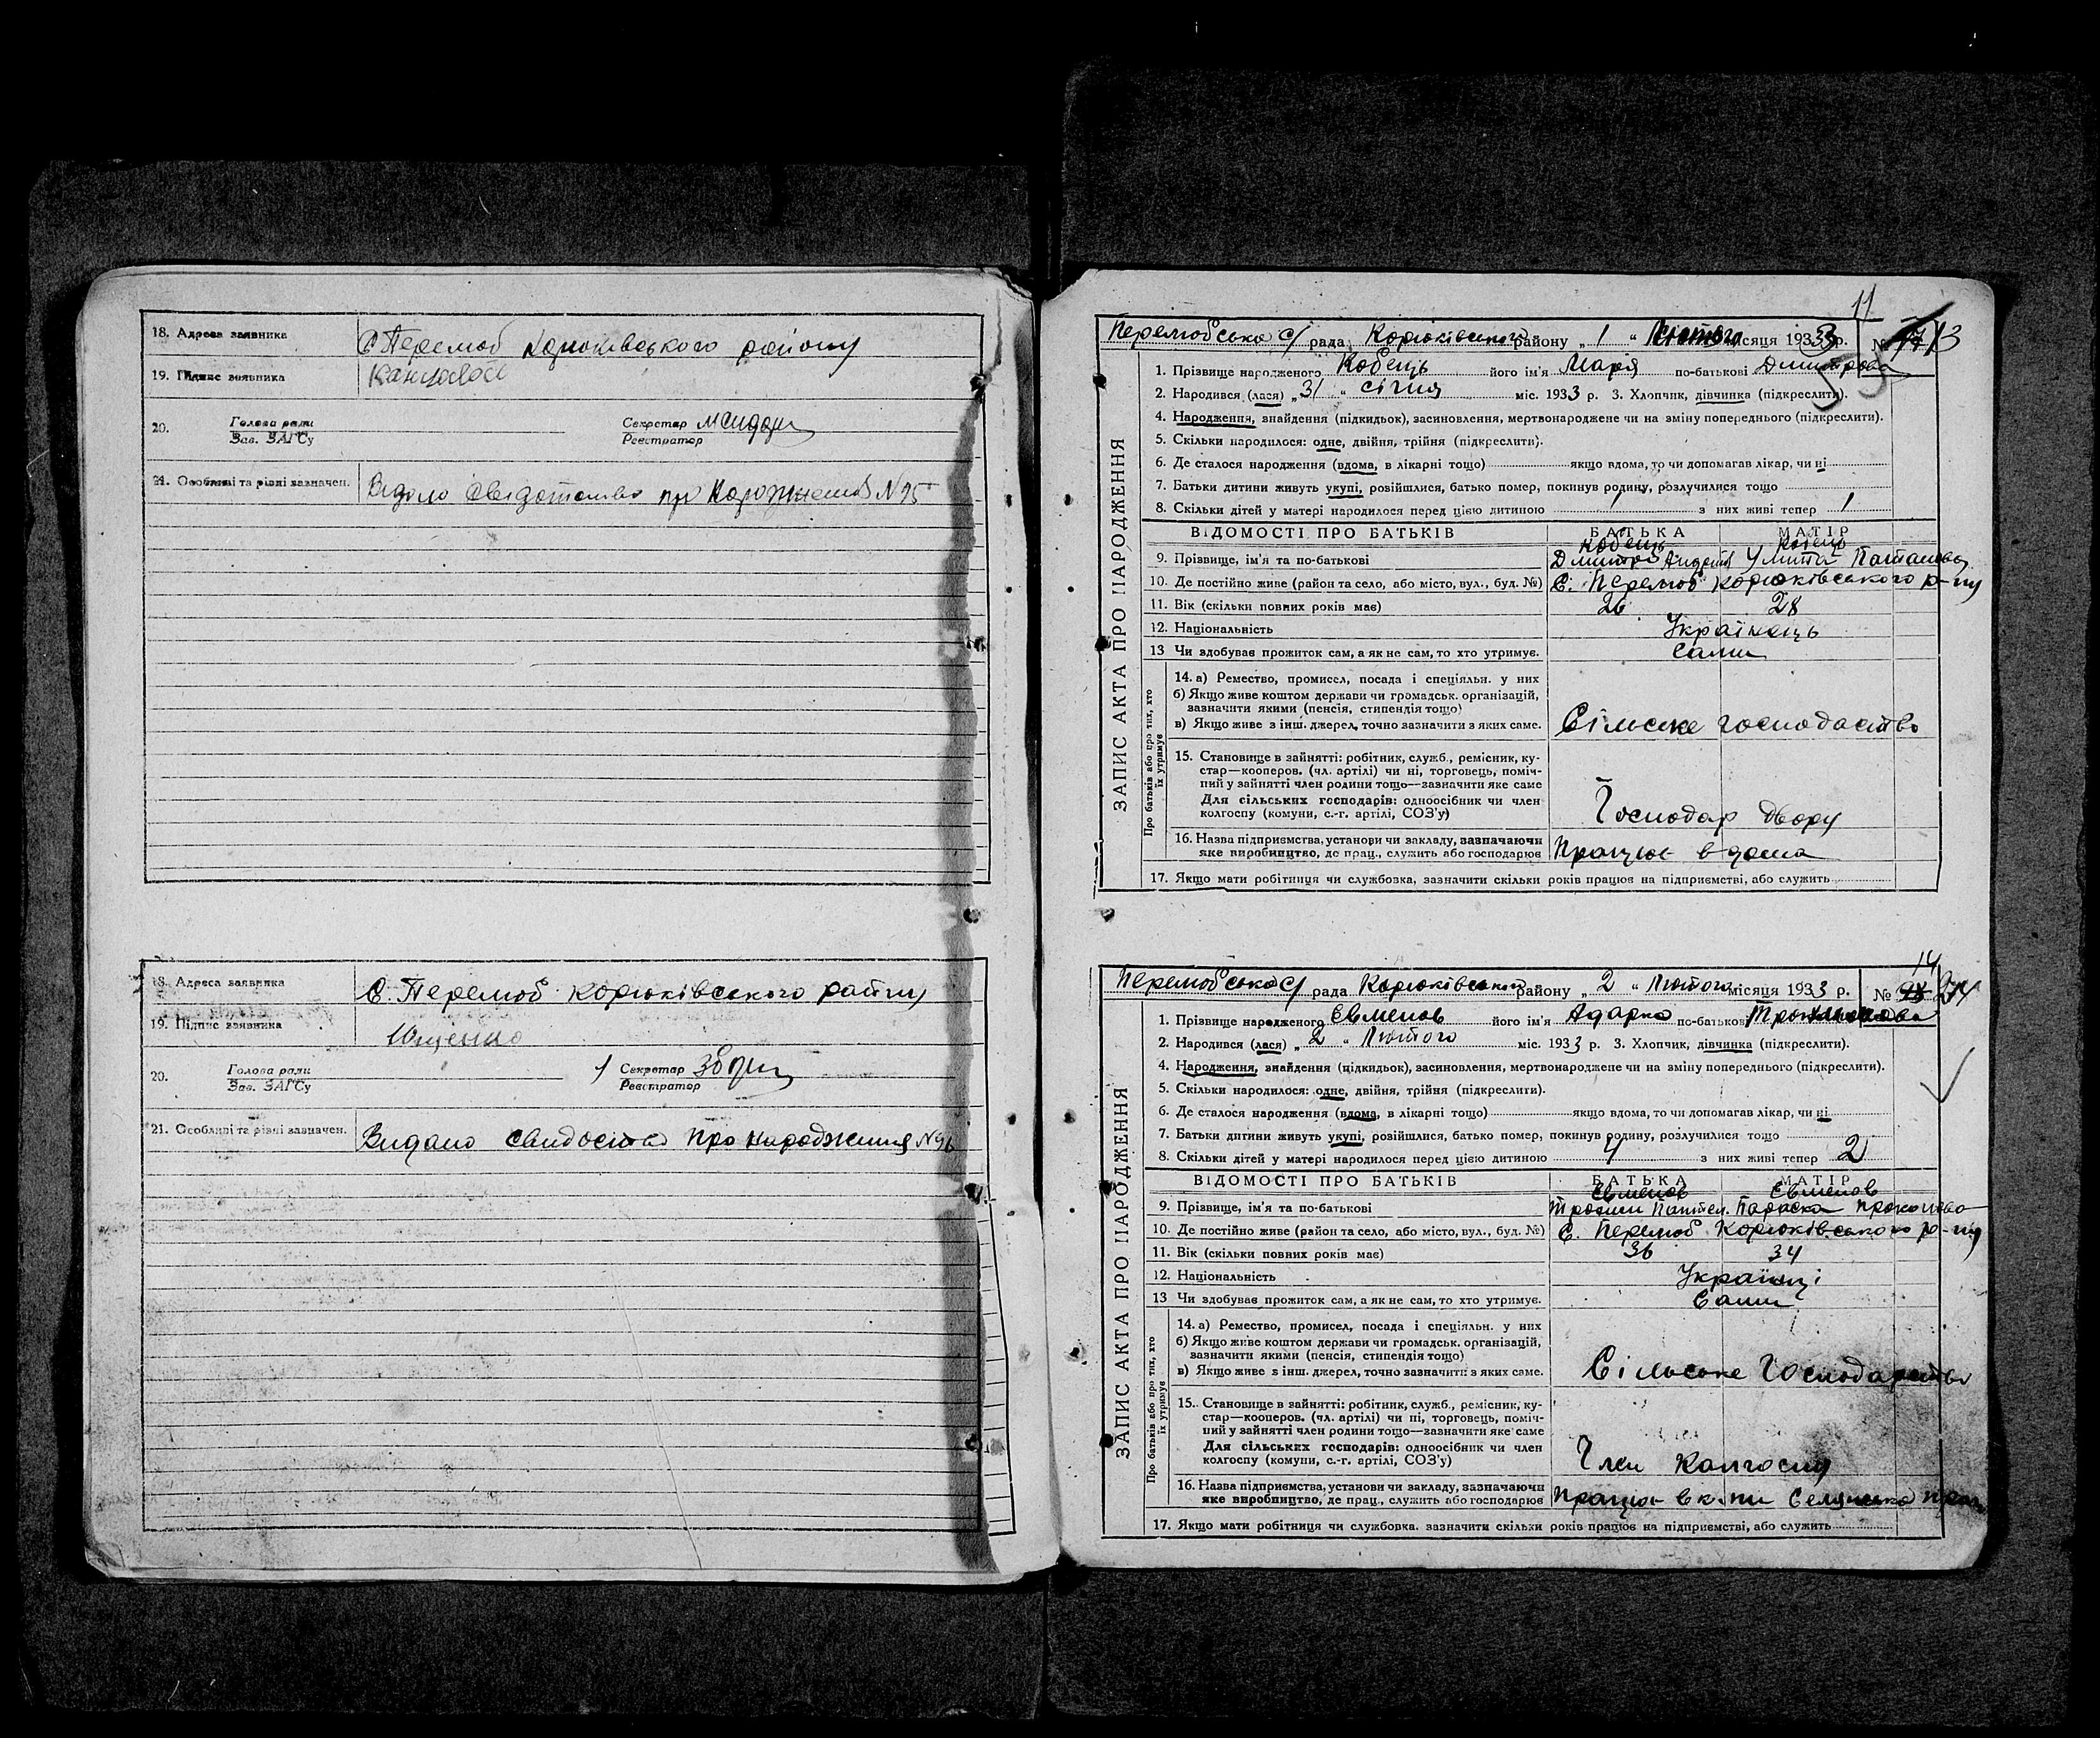 18. Адреса заявника С. Перелюб Корюківського району
19. Підпис заявника
20. Голова ради Секретар
Зав. ЗАГСу Реєстратор
21. Особливі та різні зазначен. про N 95
18. Адреса заявника С. Перелюб Корюківського району
19. Підпис заявника Ющенко
20. Голова ради Секретар
Зав. ЗАГСу Реєстратор
21. Особливі та різні зазначен. Видано про народження N 96
11
Перелюбська с/ рада Корюківського району „ 1 “ Лютого місяця 1933 р. № 13
ЗАПИС АКТА ПРО НАРОДЖЕННЯ
1. Прізвище народженого Кобець його ім'я Марія по-батькові Дмитрова
2. Народився (лася) „ 31 “ січня міс. 1933 р. 3. Хлопчик, дівчинка (підкреслити).
4. Народження, знайдення (підкидьок), засиновлення, мертвонароджене чи на зміну попереднього (підкреслити).
5. Скільки народилося: одне, двійня, трійня (підкреслити).
6. Де сталося народження (вдома, в лікарні тощо) якщо вдома, то чи допомагав лікар, чи ні
7. Батьки дитини живуть укупі, розійшлися, батько помер, покинув родину, розлучилися тощо
8. Скільки дітей у матері народилося перед цією дитиною 1 з них живі тепер 1
ВІДОМОСТІ ПРО БАТЬКІВ БАТЬКА МАТІР
Кобець Кобець
9. Прізвище, ім'я та по-батькові Дмитро
10. Де постійно живе (район та село, або місто, вул., буд. №) С. Перелюб Корюківського р-ну
11. Вік (скільки повних років має) 26 28
12. Національність Українець
13 Чи здобуває прожиток сам, а як не сам, то хто утримує. Сами
Про батьків або про тих, хто їх утримує
14. а) Ремество, промисел, посада і спеціяльн. у них
б) Якщо живе коштом держави чи громадськ. організацій,
зазначити якими (пенсія, стипендія тощо)
в) Якщо живе з інш. джерел, точно зазначити з яких саме. Сільське господаство
15. Становище в зайнятті: робітник, служб., ремісник, ку-
стар—кооперов. (чл. артілі) чи ні, торговець, поміч-
ний у зайнятті член родини тощо—зазначити яке саме
Для сільських господарів: одноосібник чи член
колгоспу (комуни, с.-г. артілі, СОЗ'у) Господар двору
16. Назва підприємства, установи чи закладу, зазначаючи
яке виробництво, де прац., служить або господарює Працює вдома
17. Якщо мати робітниця чи службовка, зазначити скільки років працює на підприємстві, або служить
14
Перелюбська с/ рада Корюківського району „ 2 “ Лютого місяця 1933 р. №
ЗАПИС АКТА ПРО НАРОДЖЕННЯ
1. Прізвище народженого Євменов його ім'я Адарка по-батькові
2. Народився (лася) „ 2 “ Лютого міс. 1933 р. 3. Хлопчик, дівчинка (підкреслити).
4. Народження, знайдення (підкидьок), засиновлення, мертвонароджене чи на зміну попереднього (підкреслити).
5. Скільки народилося: одне, двійня, трійня (підкреслити).
6. Де сталося народження (вдома, в лікарні тощо) якщо вдома, то чи допомагав лікар, чи ні
7. Батьки дитини живуть укупі, розійшлися, батько помер, покинув родину, розлучилися тощо
8. Скільки дітей у матері народилося перед цією дитиною 4 з них живі тепер 2
ВІДОМОСТІ ПРО БАТЬКІВ БАТЬКА МАТІР
Євменов Євменов
9. Прізвище, ім'я та по-батькові Параска
10. Де постійно живе (район та село, або місто, вул., буд. №) С. Перелюб Корюківського р-ну
11. Вік (скільки повних років має) 36 34
12. Національність Українці
13 Чи здобуває прожиток сам, а як не сам, то хто утримує. Сами
Про батьків або про тих, хто їх утримує
14. а) Ремество, промисел, посада і спеціяльн. у них
б) Якщо живе коштом держави чи громадськ. організацій,
зазначити якими (пенсія, стипендія тощо)
в) Якщо живе з інш. джерел, точно зазначити з яких саме. Сільське Господарство
15. Становище в зайнятті: робітник, служб., ремісник, ку-
стар—кооперов. (чл. артілі) чи ні, торговець, поміч-
ний у зайнятті член родини тощо—зазначити яке саме
Для сільських господарів: одноосібник чи член
колгоспу (комуни, с.-г. артілі, СОЗ'у) Член Колгоспу
16. Назва підприємства, установи чи закладу, зазначаючи
яке виробництво, де прац., служить або господарює Працює в
17. Якщо мати робітниця чи службовка, зазначити скільки років працює на підприємстві, або служить